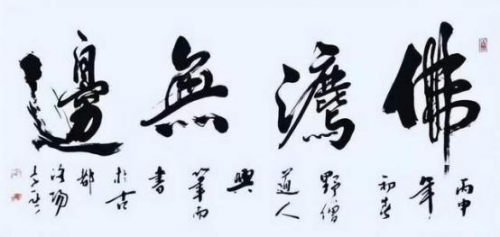 佛灋無邊
丙申
年
初春
野僧
道人
興
筆而
書
於古
都
洛陽